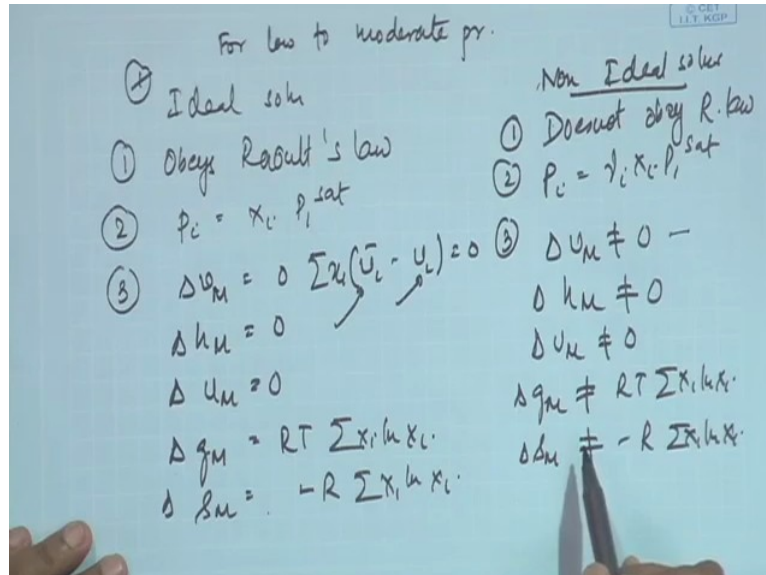 © CET
I.I.T. KGP
For low to moderate pr.
Ideal soln
① Obeys Raoult's law
② Pi = xi Pi^sat
③ ΔvM = 0 Σxi(Ūi - Ui) = 0
ΔhM = 0
ΔuM = 0
ΔgM = RT Σxi ln xi.
ΔsM = - R Σxi ln xi.
Non Ideal solns
① Doesnot obey R. law
② Pi = γi xi Pi^sat
③ ΔvM ≠ 0 -
ΔhM ≠ 0
ΔuM ≠ 0
ΔgM ≠ RT Σxi ln xi.
ΔsM ≠ - R Σxi ln xi.